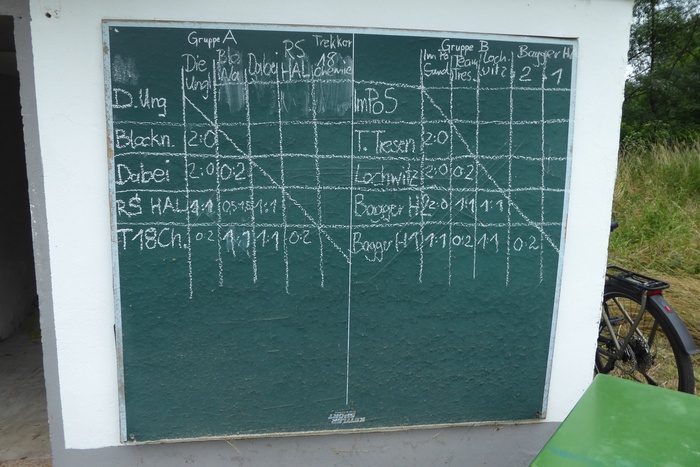 Gruppe A
Die Ung! Dabei RS HALL Trekker 18 chemie
D. Ung
Blockn. 2:0
Dabei 2:0 0:2
RS HALL 1:1 1:1
T18Ch. 0:2 1:1 1:1 0:2
Gruppe B
Im Po Sand Team Tres. Loch witz Bagger H 2 1
ImPoS
T. Tresen 2:0
Lochwitz 2:0 0:2
Bagger H2 2:0 1:1 1:1
Bagger H1 1:1 0:2 1:1 0:2